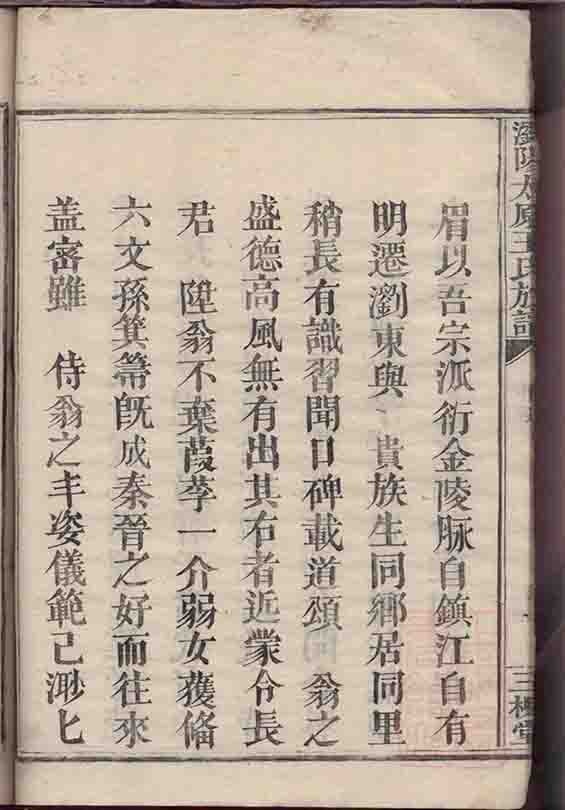 瀏陽太原王氏族譜
三槐堂
眉以吾宗派衍金陵脉自鎮江自有
明遷瀏東與 貴族生同鄉居同里
稍長有識習聞口碑載道頌 翁之
盛德高風無有出其右者近蒙令長
君 陞翁不棄葭莩一介弱女獲俻
六文孫箕箒旣成秦晉之好而往來
盖密雖 侍翁之丰姿儀範已渺匕